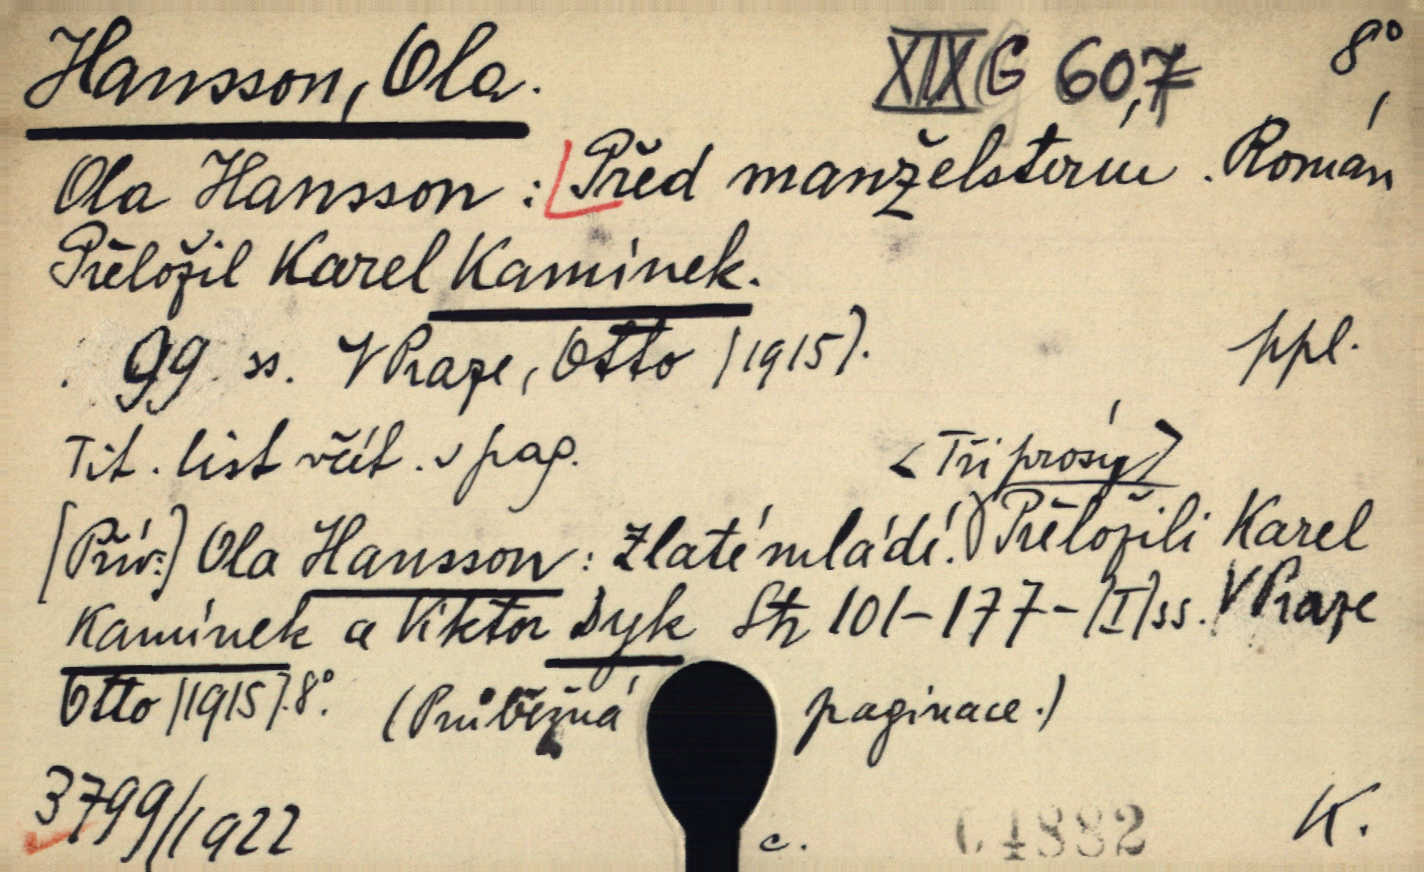 Hansson, Ola. XIX G 60,7 8°
Ola Hansson : Před manželstvím. Román
Přeložil Karel Kamínek.
. 99 ss. V Praze, Otto (1915). ppl.
Tit. list včít. v pag. <Tři prósy>
[Přív:] Ola Hansson: Zlaté mládí. Přeložili Karel
Kamínek a Viktor Dyk Str 101-177-[I] ss. V Praze
Otto (1915). 8°. (Průběžná paginace.)
3799/1922 c. 04882 K.